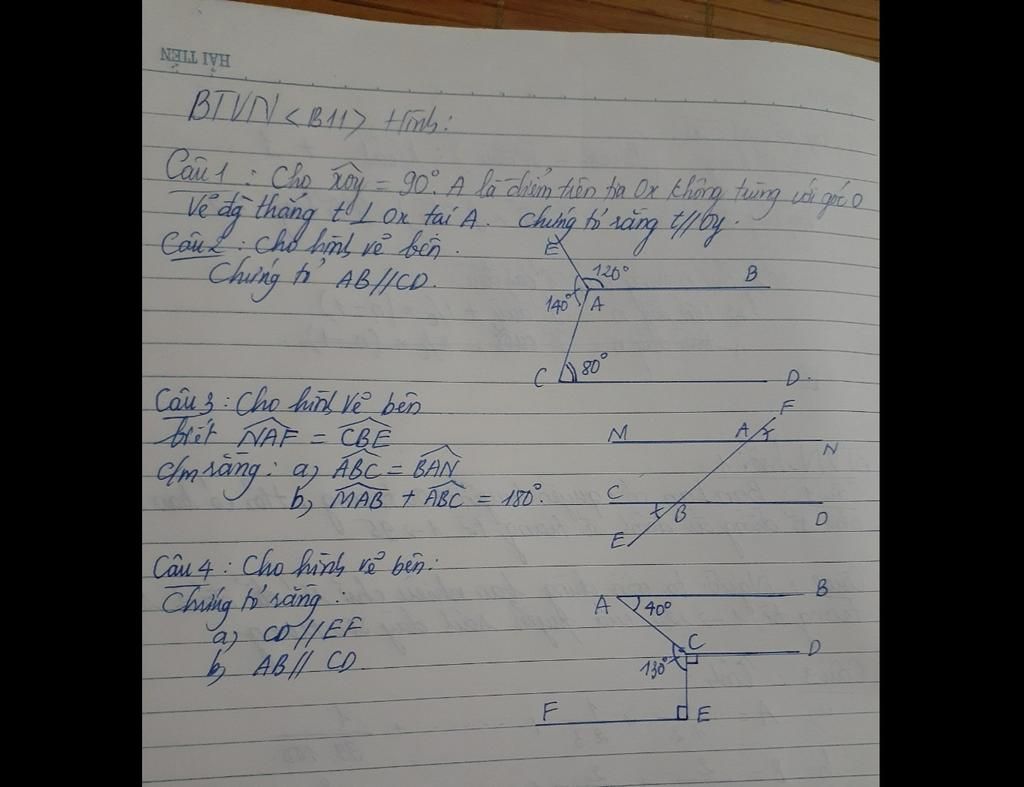 HẢI TIẾN
BTVN <B11> Hình:
Câu 1 : Cho xOy = 90°. A là điểm trên tia Ox không trùng với gốc O
Vẽ đg thẳng t ⊥ Ox tại A. Chứng tỏ rằng t//Oy.
Câu 2 : Cho hình vẽ bên.
Chứng tỏ AB//CD.
E
120°
B
140°
A
C
80°
D
Câu 3 : Cho hình vẽ bên
biết NAF = CBE
c/m rằng: a, ABC = BAN
b, MAB + ABC = 180°.
F
M
A
N
C
B
D
E
Câu 4 : Cho hình vẽ bên:
Chứng tỏ rằng :
a, CD//EF
b, AB// CD
A
40°
B
C
D
130°
F
E